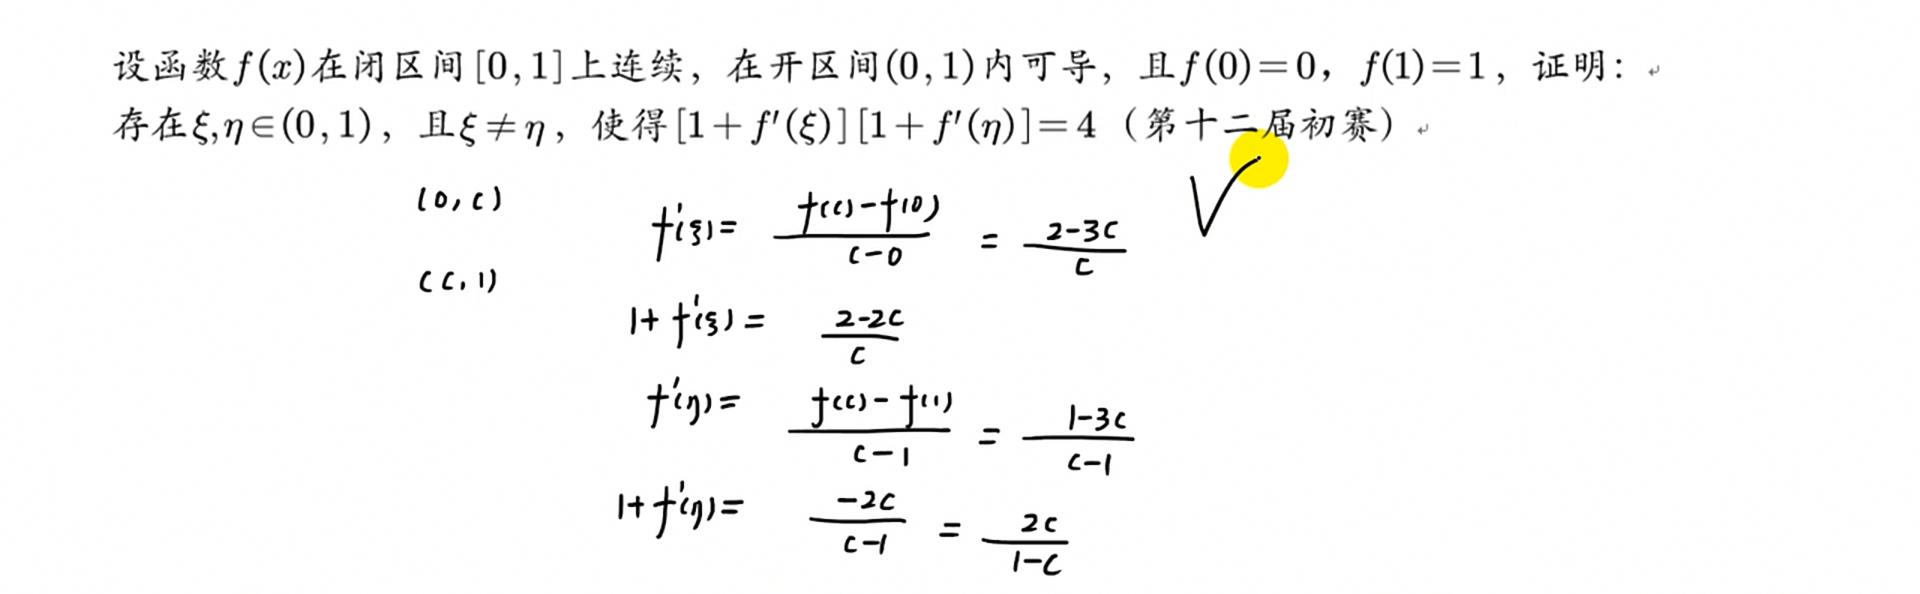 设函数f(x)在闭区间[0,1]上连续，在开区间(0,1)内可导，且f(0)=0，f(1)=1，证明：
存在ξ,η∈(0,1)，且ξ≠η，使得[1+f′(ξ)][1+f′(η)]=4（第十二届初赛）
(0,c)
f'(ξ)= (f(c)-f(0))/(c-0) = (2-3c)/c
(c,1)
1+f'(ξ)= (2-2c)/c
f'(η)= (f(c)-f(1))/(c-1) = (1-3c)/(c-1)
1+f'(η)= (-2c)/(c-1) = 2c/(1-c)